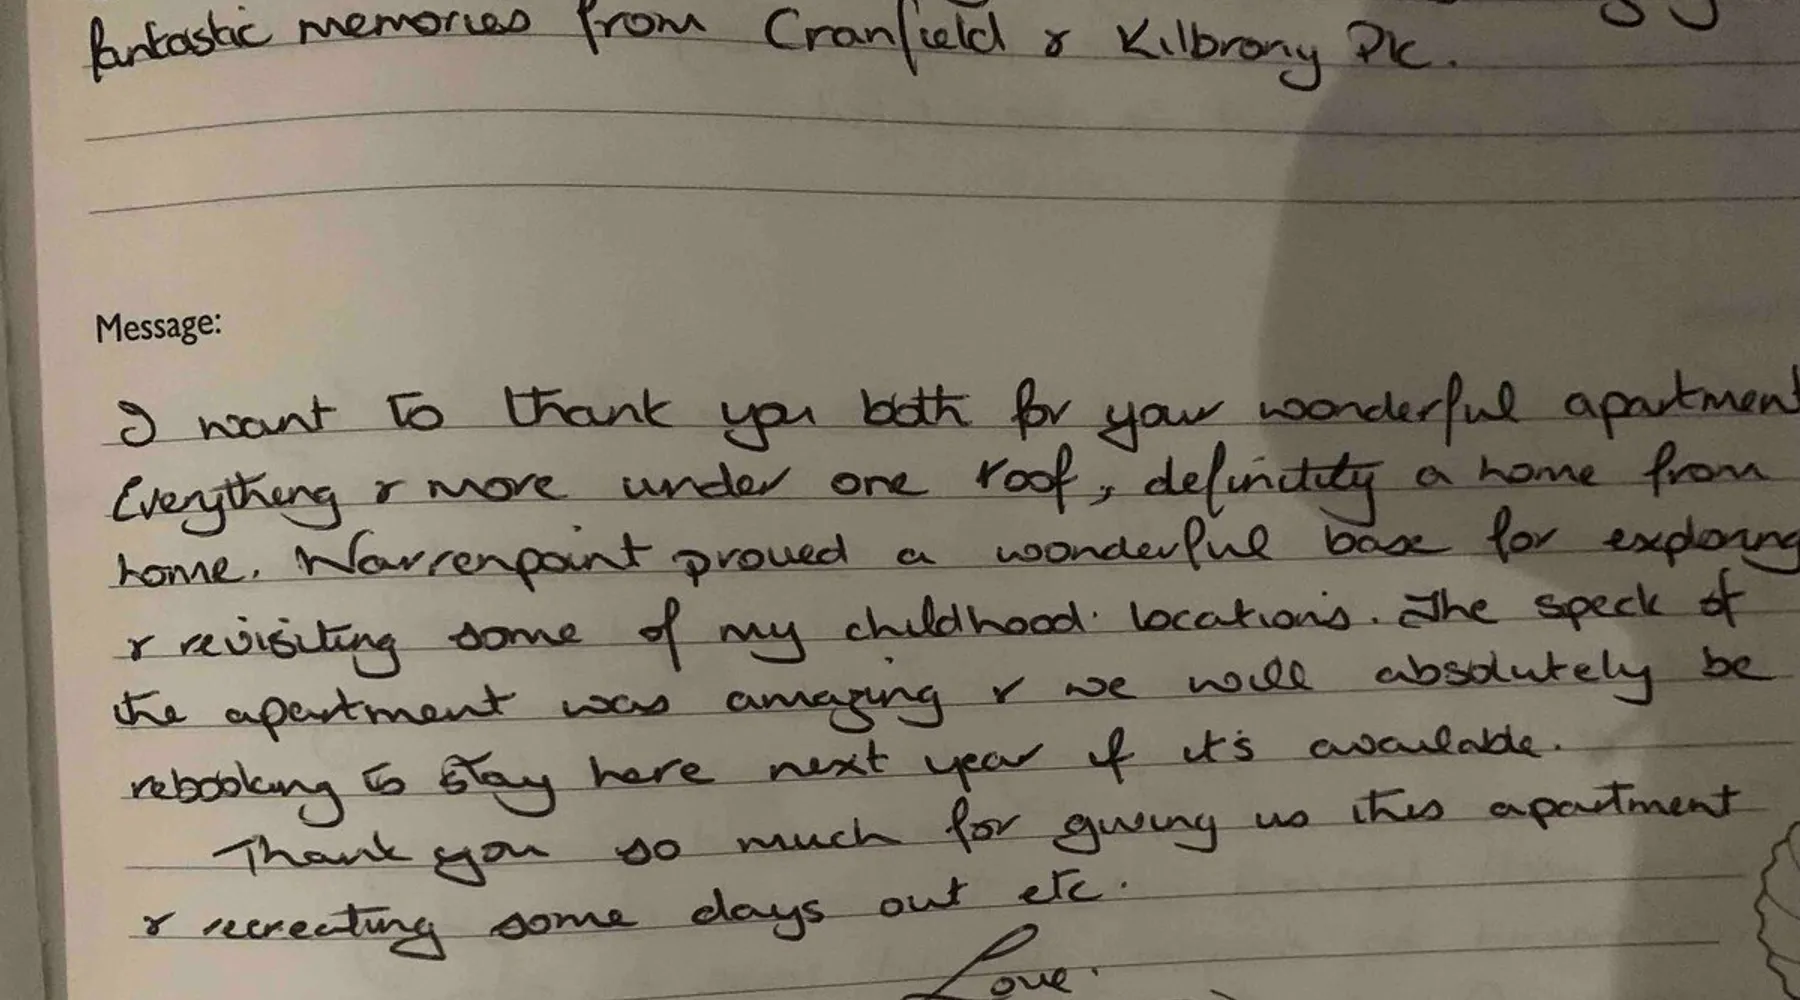 fantastic memories from Cranfield & Kilbrony Pk.
Message:
I want to thank you both for your wonderful apartment
Everything & more under one roof, definitely a home from
home. Warrenpoint proved a wonderful base for exploring
& revisiting some of my childhood locations. The speck of
the apartment was amazing & we will absolutely be
rebooking to stay here next year if it's available.
Thank you so much for giving us this apartment
& recreating some days out etc.
Love.